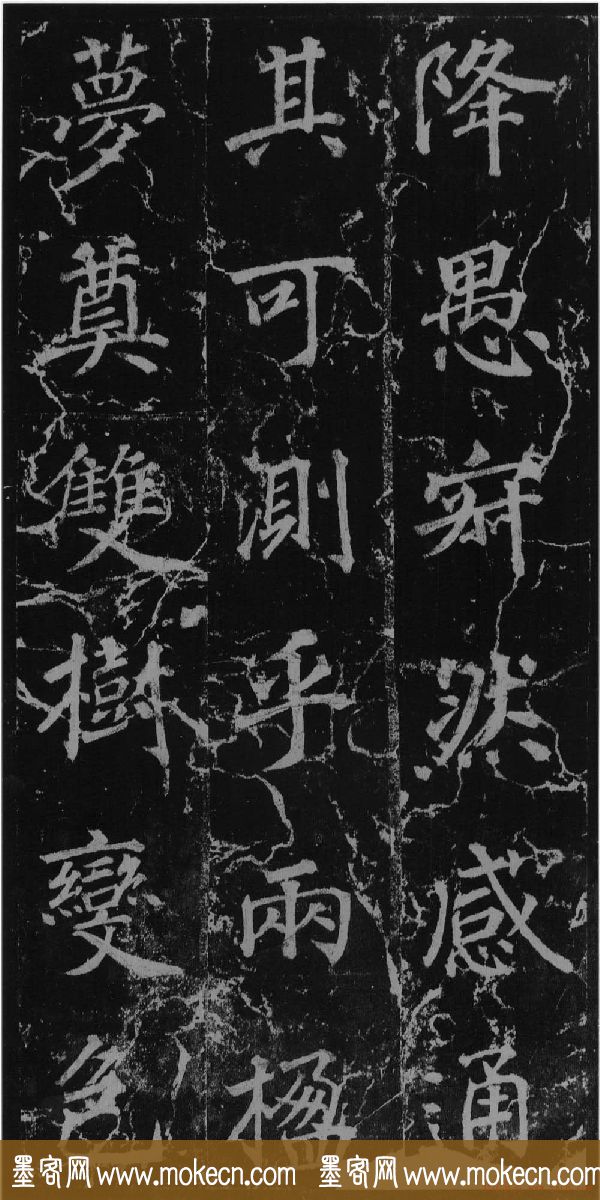 降愚寂然感通
其可測乎兩楹
夢奠雙樹變色
墨客网 www.mokecn.com 墨客网 www.mokecn.com